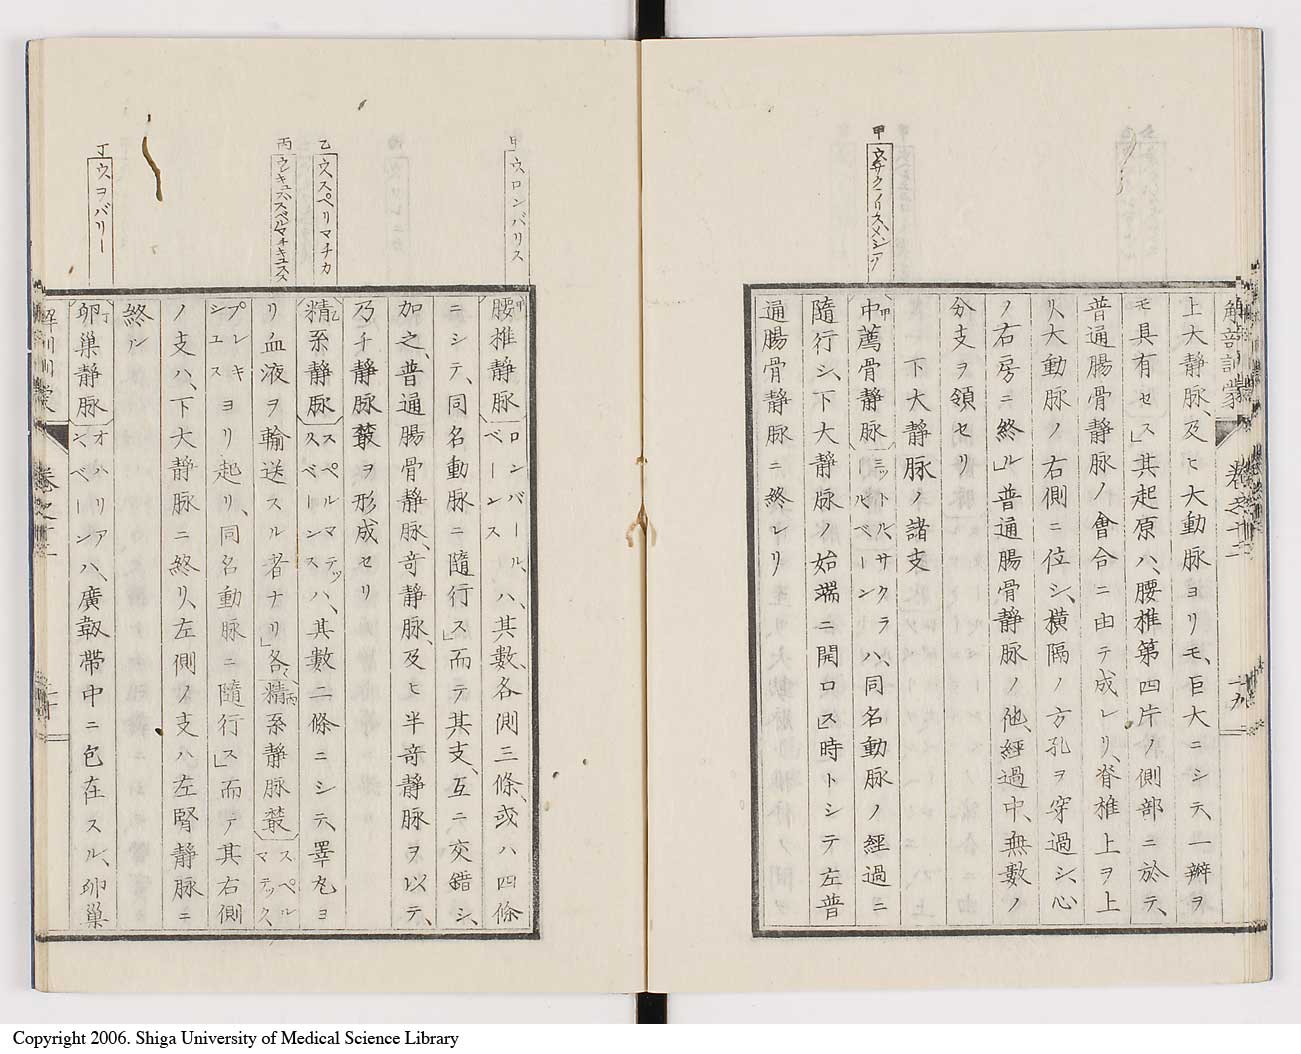 解剖訓蒙
卷之十二
十九
上大静脉、及ヒ大動脉ヨリモ、巨大ニシテ、一辨ヲ
モ具有セス」其起原ハ、腰椎第四片ノ側部ニ於テ、
普通腸骨静脉ノ會合ニ由テ成レリ、脊椎上ヲ上
リ、大動脉ノ右側ニ位シ、横隔ノ方孔ヲ穿過シ、心
ノ右房ニ終ル」普通腸骨静脉ノ他、經過中、無數ノ
分支ヲ領セリ
下大静脉ノ諸支
甲
中薦骨静脉 ミットルサクラールベーン ハ、同名動脉ノ經過ニ
隨行シ、下大静脉ノ始端ニ開口ス」時トシテ左普
通腸骨静脉ニ終レリ
甲 ウロンバリス
乙 ウスペリマチカ
丁 ウヲバリー
甲
腰椎静脉 ロンバール、ベーンス ハ、其數、各側三條、或ハ四條
ニシテ、同名動脉ニ隨行ス」而テ其支、互ニ交錯シ、
加之、普通腸骨静脉、竒静脉、及ヒ半竒静脉ヲ以テ、
乃チ静脉叢ヲ形成セリ
乙
精系静脉 スペルマテッスベーンス ハ、其數二條ニシテ、睪丸ヨ
リ血液ヲ輸送スル者ナリ」各精系静脉叢 スペルマテック
プレキシュス ヨリ起リ、同名動脉ニ隨行ス」而テ其右側
ノ支ハ、下大静脉ニ終リ、左側ノ支ハ左腎静脉ニ
終ル
丁
卵巢静脉 オハリアンベーン ハ、廣靱帶中ニ包在スル、卵巢
解剖訓蒙
卷之十二
二十
Copyright 2006. Shiga University of Medical Science Library